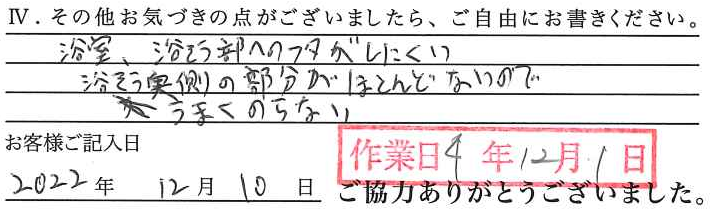 Ⅳ．その他お気づきの点がございましたら、ご自由にお書きください。
浴室、浴そう部へのフタがしにくい
浴そう奥側の部分がほとんどないので
うまくのらない
お客様ご記入日
作業日 4 年 12 月 1 日
2022 年 12 月 10 日
ご協力ありがとうございました。